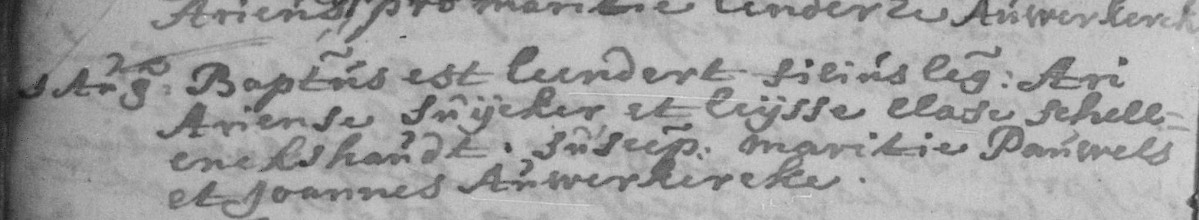 Ariens, pro maritie lenderse Auwerkerck
s Aug: Baptus est lendert filius leg: Ari
Ariense Suÿcker et lÿsse clase schell=
enckshaudt. Suscep: maritie Pauwels
et Joannes Auwerkercke.